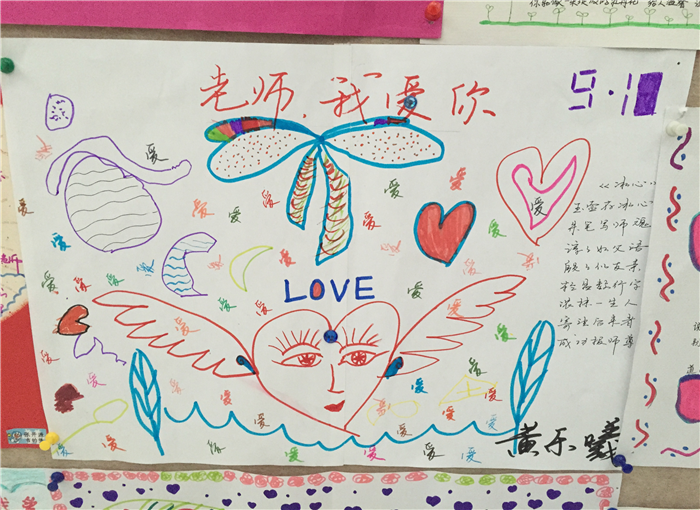 老师,我爱你
9·10
《冰心》
玉壶存冰心
朱笔写师魂
谆谆如父语
殷殷似友亲
轻盈数行字
浓抹一生人
寄望后来者
成功报师尊
爱
爱
爱
爱
爱
爱
爱
爱
爱
爱
爱
爱
LOVE
爱
爱
爱
爱
爱
爱
爱
爱
爱
爱
爱
爱
爱
黄乐曦